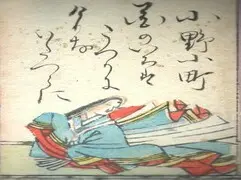 小野小町
花のいろは
うつりに
けりな
いたつらに